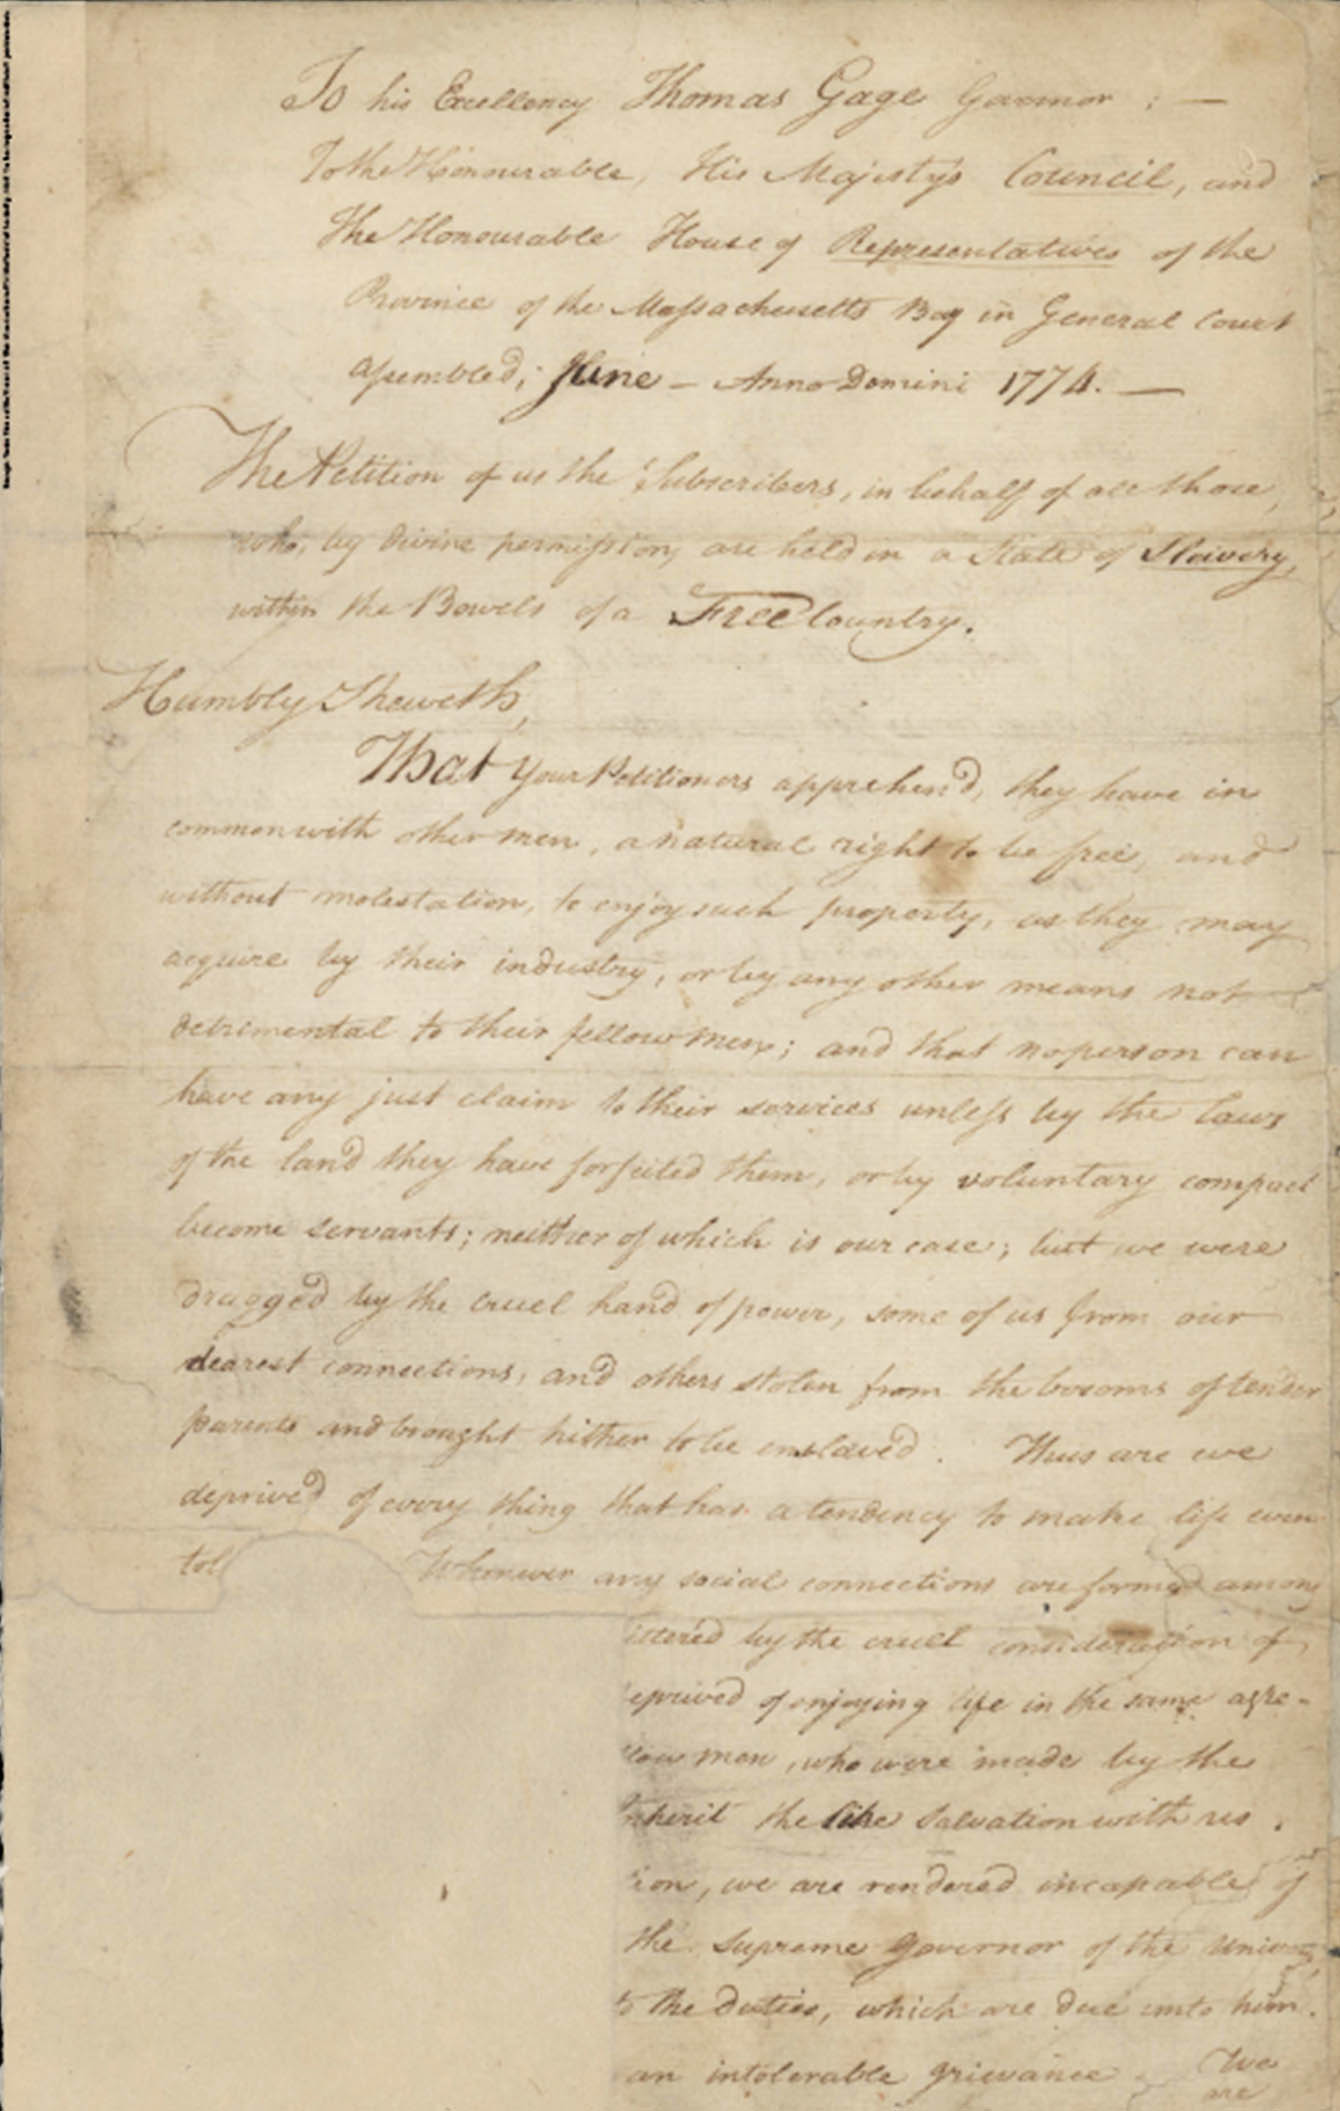 To his Excellency Thomas Gage Governor : —
To the Honourable, His Majesty's Council, and
the Honourable House of Representatives of the
Province of the Massachusetts Bay in General Court
assembled; June — Anno Domini 1774. —
The Petition of us the Subscribers, in behalf of all those,
who, by divine permission, are held in a State of Slavery,
within the Bowels of a Free Country.
Humbly Sheweth,
That your Petitioners apprehend, they have in
common with other men, a natural right to be free, and
without molestation, to enjoy such property, as they may
acquire by their industry, or by any other means not
detrimental to their fellow men; and that no person can
have any just claim to their services unless by the laws
of the land they have forfeited them, or by voluntary compact
become servants; neither of which is our case; but we were
dragged by the cruel hand of power, some of us from our
dearest connections, and others stolen from the bosoms of tender
parents and brought hither to be enslaved. Thus are we
deprived of every thing that has a tendency to make life even
tol Whenever any social connections are formed among
ittered by the cruel consideration of
eprived of enjoying life in the same agre-
low men, who were made by the
nherit the like Salvation with us.
ion, we are rendered incapable of
the Supreme Governor of the Univers
to the duties, which are due unto him.
an intolerable grievance We
are